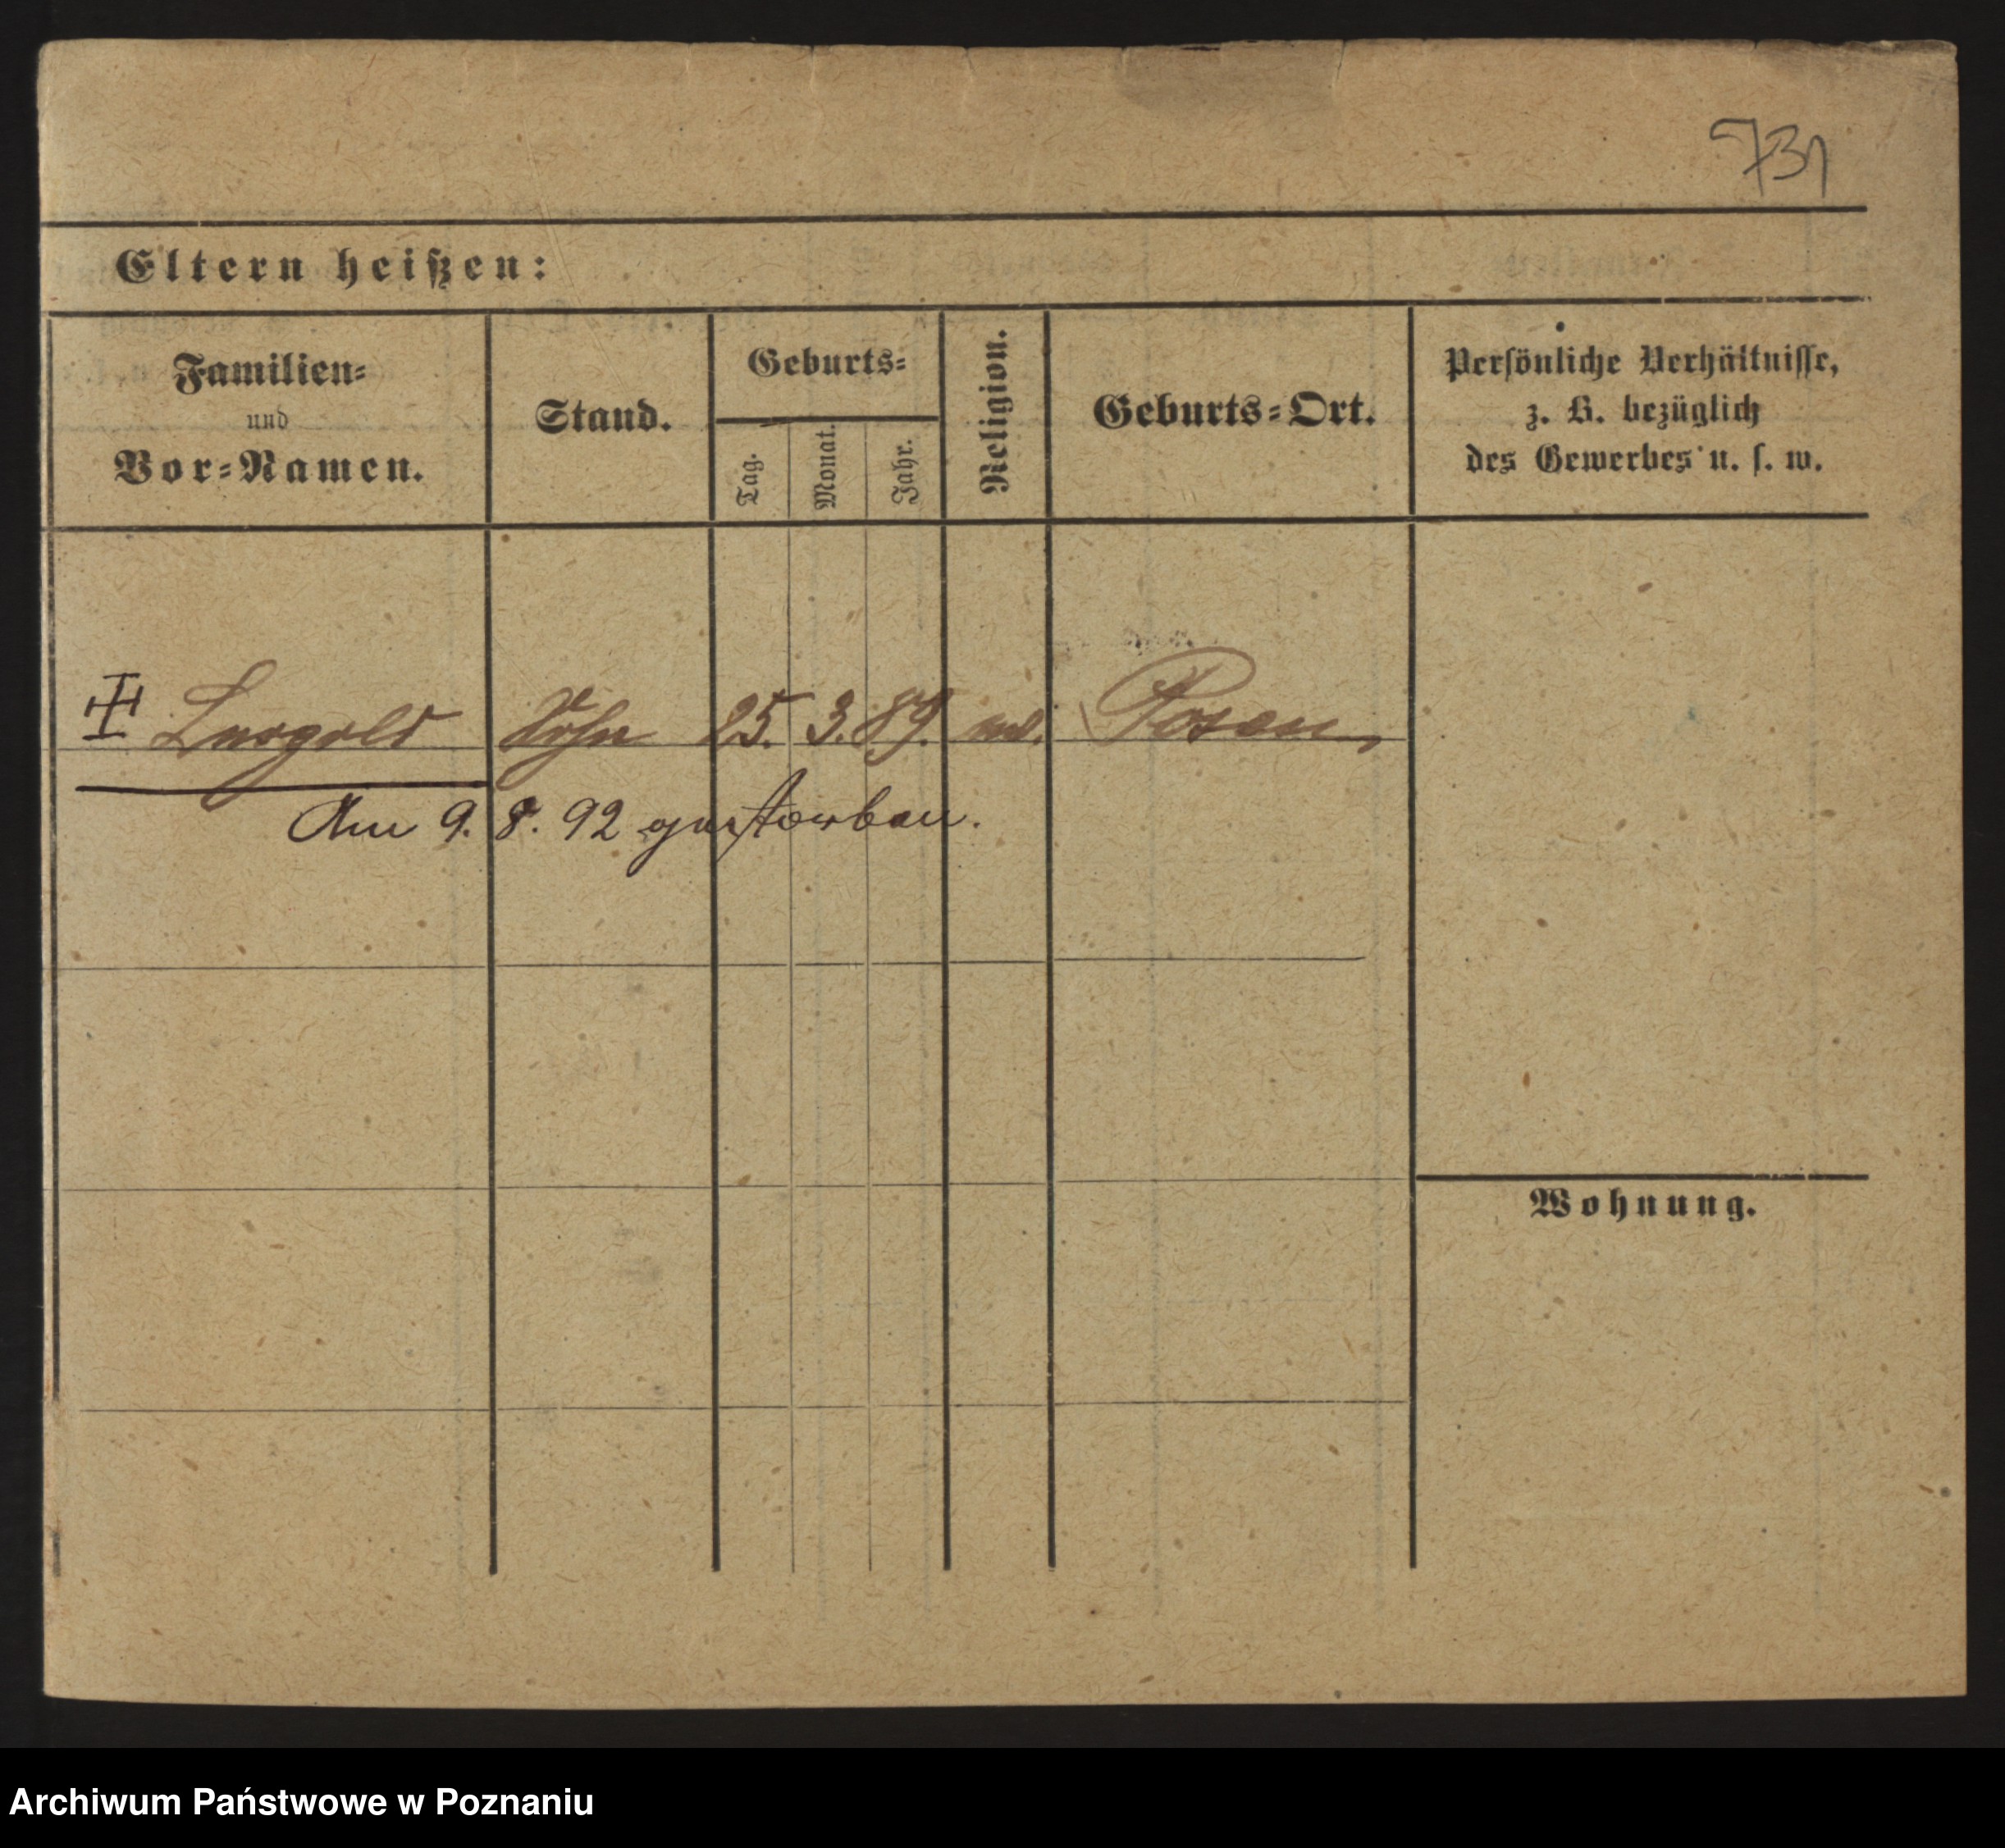 731
Eltern heißen:
Familien=
und
Vor=Namen.
Stand.
Geburts=
Tag.
Monat.
Jahr.
Religion.
Geburts=Ort.
Persönliche Verhältnisse,
z. B. bezüglich
des Gewerbes u. s. w.
Leopold Sohn 25. 3. 89. Posen,
Am 9. 8. 92 gestorben.
Wohnung.
Archiwum Państwowe w Poznaniu